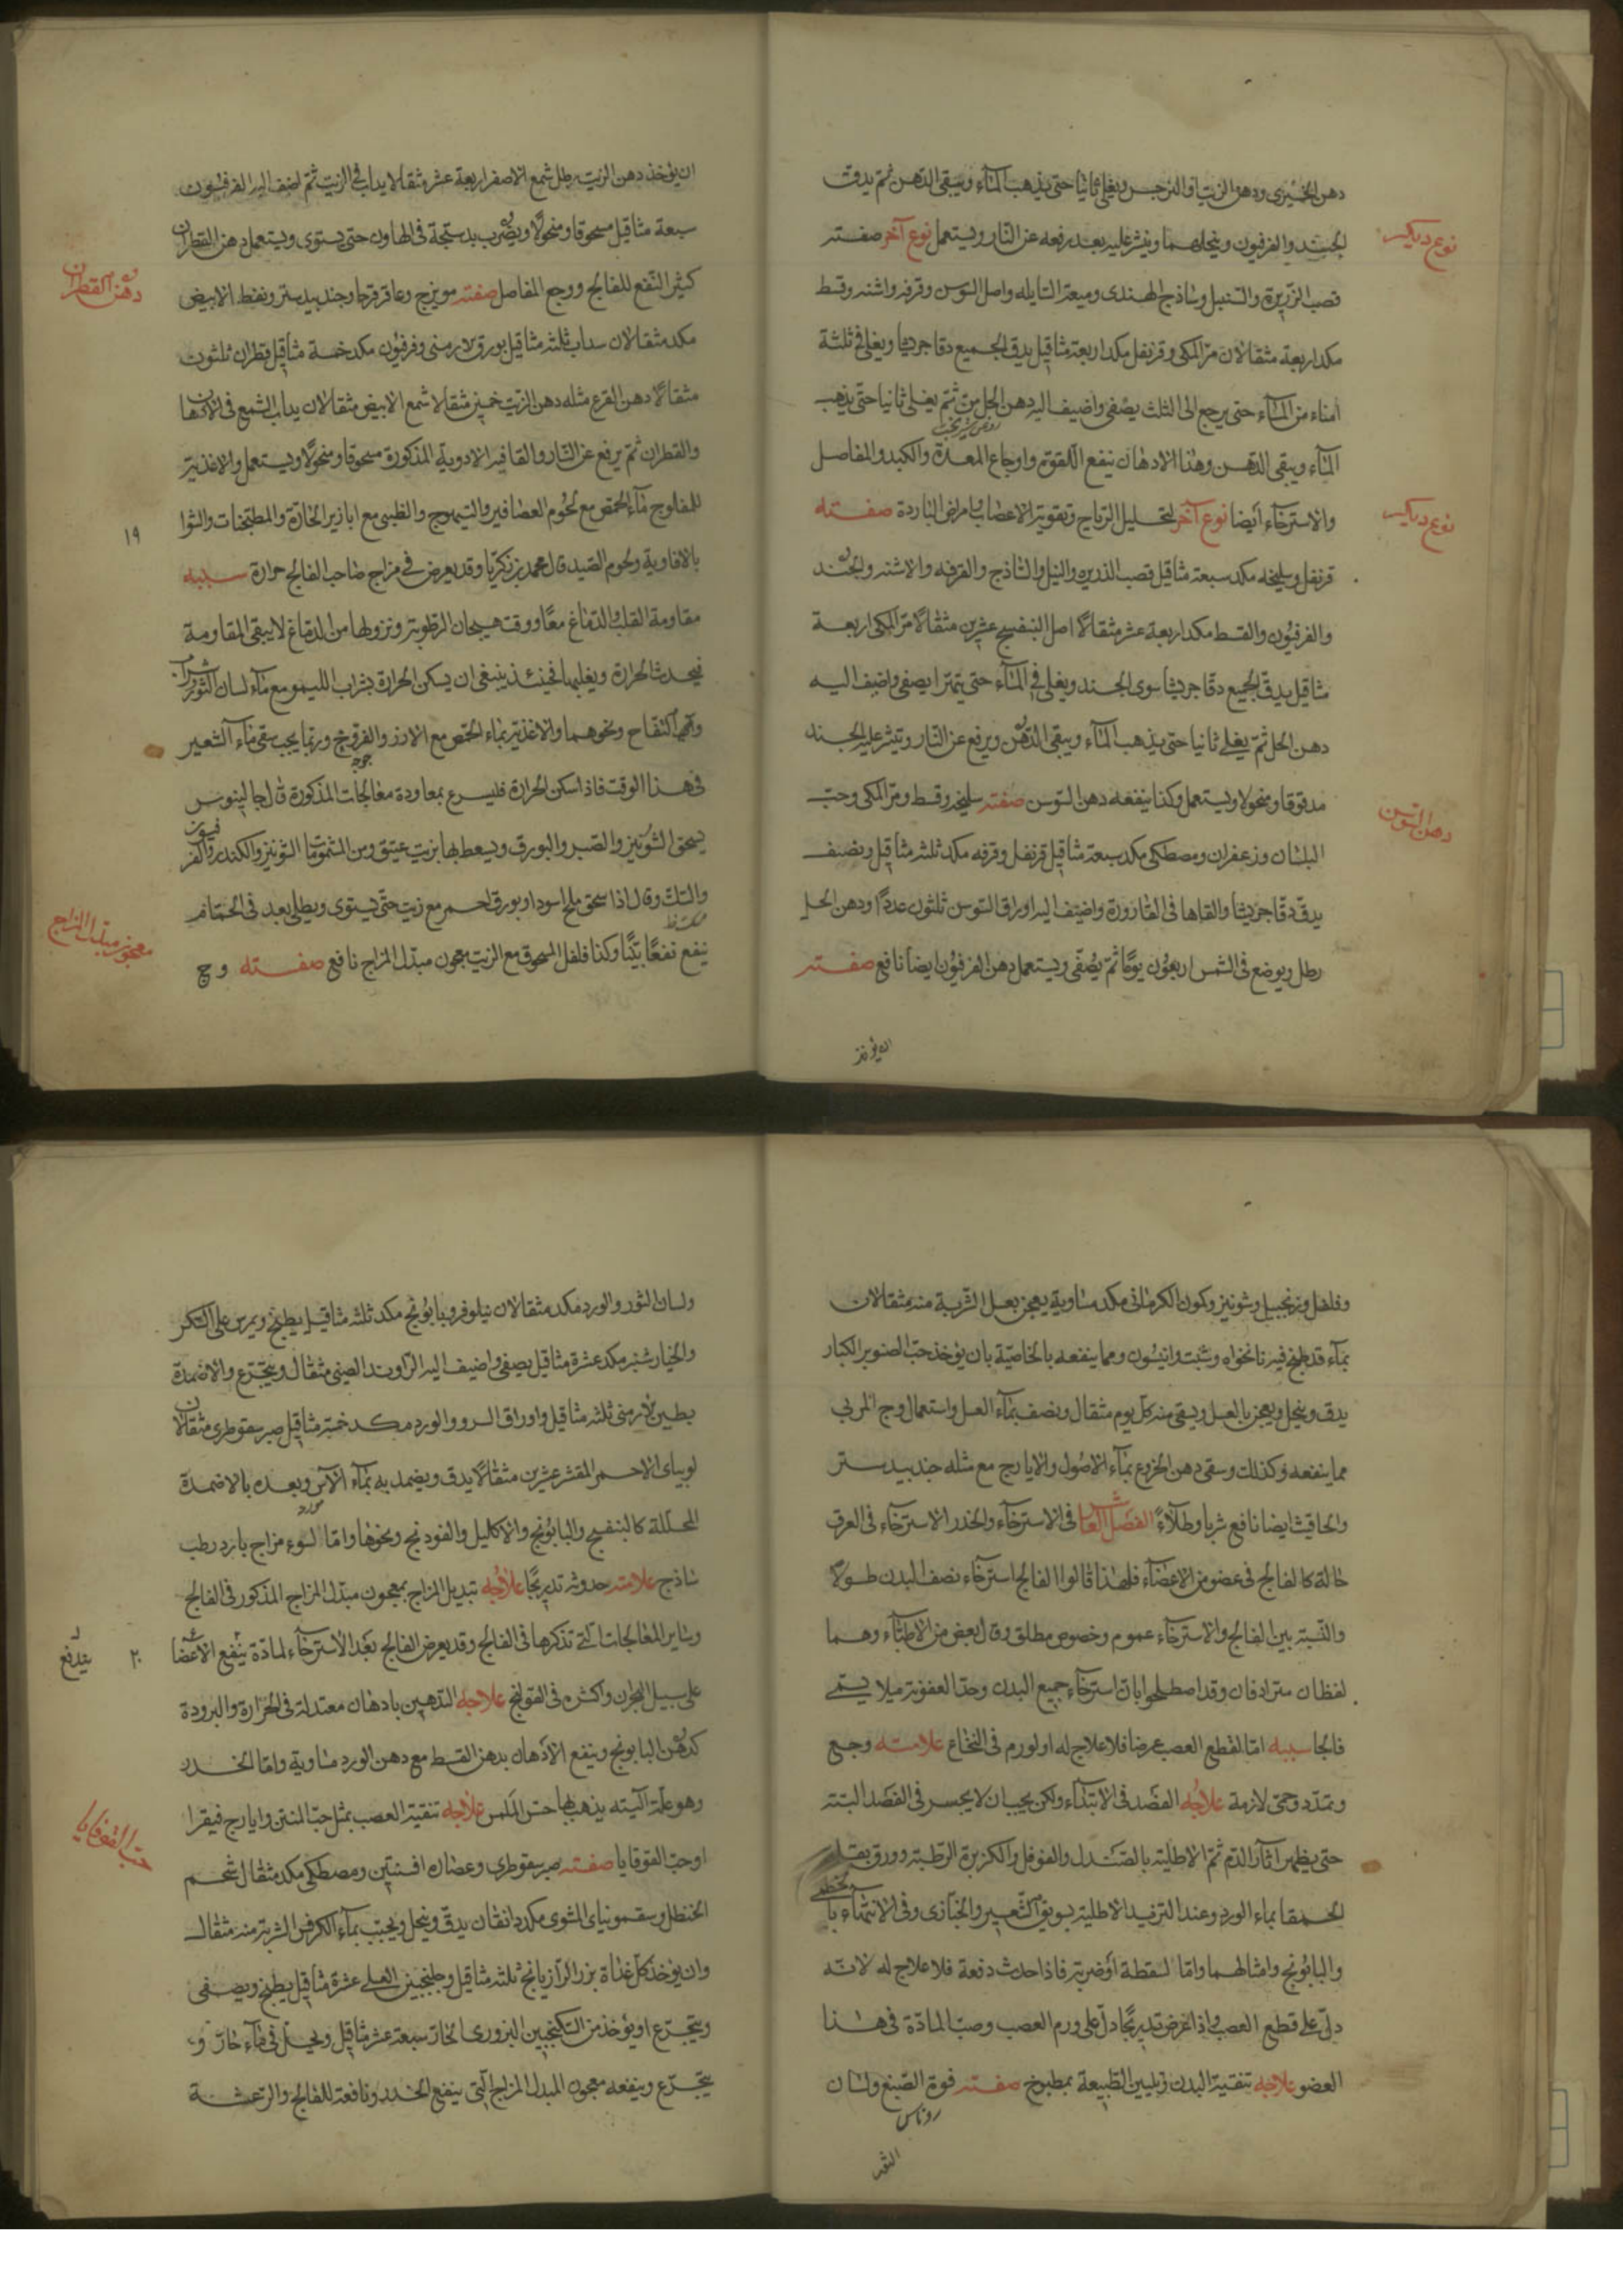 دهن الخيزى ودهن الزيت او النرجس ويغلى ثانيا حتى يذهب المآء ويبقى الدّهن ثم يدقّ
الجند والفرفيون وينخلهما وينثر عليه بعد رفعه عن النار ويستعمل نوع آخر صفته
نوع ديكر
قصب الزريرة والسّنبل وساذج الهندى وميعة السايله واصل السّوس وقرفه واشنه وقسط
مكد اربعة مثقالان مرّ المكى وقرنفل مكد اربعة مثاقيل يدق الجميع دقا جريشا ويغلى فى ثلثة
امناء من المآء حتى يرجع الى الثلث يصفى واضيف اليه دهن الحل من ثم يغلى ثانيا حتى يذهب
المآء ويبقى الدهن وهذا الادهان ينفع اللقوة واوجاع المعدة والكبد والمفاصل
والاسترخآء ايضا نوع آخر لتحليل الرياح وتقوية الاعصاب امراض الباردة صفته
نوع ديكر
قرنفل وسليخه مكد سبعة مثاقيل قصب الذريره والنيل والساذج والقرفه والاشنه والجند
والفرفيون والقسط مكد اربعة عشر مثقالا اصل البنفسج عشرين مثقالا مرّ المكى اربعة
مثاقيل يدقّ الجميع دقا جريشا سوى الجند ويغلى فى المآء حتى يتهرّا يصفى واضيف اليه
دهن الحل ثمّ يغلى ثانيا حتى يذهب المآء ويبقى الدّهن ويرفع عن النّار وينثر عليه الجند
مدقوقا ومنخولا ويستعمل وكذا ينفعه دهن السّوس صفته سليخه وقسط ومرّ المكى وحبّ
دهن السوسن
البلسان وزعفران ومصطكى مكد سبعة مثاقيل قرنفل وقرفه مكد ثلثه مثاقيل ونصف
يدقّ دقا جريشا والقاها فى القارورة واضيف اليه اوراق السّوس ثلثون عددًا ودهن الحل
رطل ويوضع فى الشمس اربعون يومًا ثمّ يصفّى ويستعمل دهن الفرفيون ايضا نافع صفته
ان يؤخذ
ان يؤخذ دهن الزيت رطل شمع الاصفر اربعة عشر مثقالا يداب فى الزيت ثمّ اضيف اليه الفرفيون
سبعة مثاقيل مسحوقا ومنخولًا ويضرب بدستجة فى الهاون حتى يستوى ويستعمل دهن القطران
دهن القطران
كثير النّفع للفالج ووجع المفاصل صفته مويزج وعاقرقرحا وجندبيدستر ونفط الابيض
مكد مثقالان سداب ثلثه مثاقيل بورق الارمنى وفرفيون مكد خمسة مثاقيل قطران ثلثون
مثقالا دهن القرع مثله دهن الزيت خمسين مثقالا شمع الابيض مثقالان يداب الشمع فى الادهان
والقطران ثم يرفع عن النّار والقا فيه الادوية المذكورة مسحوقا ومنخولًا ويستعمل والاغذية
للمفلوج مآء الحمص مع لحوم العصافير والتيهوج والظبى مع ابازير الحارّة والمطبخات والشوا
١٩
بالافاوية ولحوم الصّيد قال محمد بن زكريّا وقد يعرض فى مزاج صاحب الفالج حرارة سببه
مقاومة القلب والدّماغ معًا ووقت هيجان الرّطوبة ونزولها من الدماغ لا يبقى المقاومة
فيحدث الحرارة ويغلبها فحينئذ ينبغى ان يسكن الحرارة بشراب الليمو مع مآء لسان الثور وشراب
التفاح ونحوهما والاغذية بماء الحمّص مع الارز والفروج وربّما يجب سقى مآء الشعير
جوجه
فى هذا الوقت فاذا سكن الحرارة فليسرع بمعاودة معالجات المذكورة قال جالينوس
يسحق الشونيز والصّبر والبورق ويسعط بها بزيت عتيق ومن المشمومات الشونيز والكندر والفرفيون
والسّك وقال اذا سحق ملح اسود او بورق احمر مع زيت حتى يستوى ويطلى بعد فى الحمّام
ينفع نفعًا بيّنًا وكذا فلفل المسحوق مع الزيت معجون مبدّل المزاج نافع صفته وج
معجون مبدل المزاج
وفلفل وزنجبيل وشونيز وكمون الكرمانى مكد مساوية يعجن بعسل الشربة منه مثقالان
بمآء قد طبخ فيه نانخواه وشبت وانيسون ومما ينفعه بالخاصيّة بان يؤخذ حبّ الصنوبر الكبار
يدق وينخل ويعجن بالعسل ويسقى منه كل يوم مثقال ونصف بمآء العسل واستعمال وج المربى
مما ينفعه وكذلك وسقى دهن الخروع بمآء الاصول والايارج مع مثله جندبيدستر
والحلتيت ايضا نافع شربا وطلآءً الفصل العاشر فى الاسترخآء والخدر الاسترخآء فى العرق
حالة كالفالج فى عضو من الاعضآء فلهذا قالوا الفالج استرخآء نصف البدن طولاً
والنّسبة بين الفالج والاسترخآء عموم وخصوص مطلق وقال بعض من الاطبّآء وهما
لفظان مترادفان وقد اصطلحوا بان استرخآء جميع البدن وحدّ العفونة ميلا يسمّى
فالجا سببه امّا لقطع العصب عرضا فلا علاج له او لورم فى النّخاع علامته وجع
وتمدّد وحمّى لازمة علاجه الفصد فى الابتدآء ولكن يجب ان لا يجسر فى الفصد البتّة
حتى يظهر آثار الدّم ثمّ الاطلية بالصّندل والفوفل والكزبرة الرّطبة وورق بقلة
الحمقا بماء الورد وعند التزيد الاطلية بسويق الشّعير والخبّازى وفى الانتهآء بالخطمى
والبابونج وامثالهما وامّا لسقطة او ضربة فاذا حدث دفعة فلا علاج له لانّه
دلّ على قطع العصب واذا عرض تدريجًا دلّ على ورم العصب وصبّ المادّة فى هذا
العضو علاجه تنقية البدن وتليين الطّبيعة بمطبوخ صفته فوة الصّبغ ولسان
روناس
الثور
ولسان الثور والورد مكد مثقالان نيلوفر وبابونج مكد ثلثه مثاقيل يطبخ ويمرس على السّكر
والخيارشنبر مكد عشرة مثاقيل يصفى واضيف اليه الرّاوند الصينى مثقال ويتجرّع والاضمدة
بطين الارمنى ثلثه مثاقيل واوراق السرو والورد مكد خمسة مثاقيل صبر سقوطرى مثقالان
لوبياى الاحمر المقشر عشرين مثقالًا يدق ويضمد به بمآء الآس وبعده بالاضمدة
مورد
المحلّلة كالبنفسج والبابونج والاكليل والفودنج ونحوها وامّا لسوء مزاج بارد رطب
ساذج علامته حدوثه تدريجًا علاجه تبديل المزاج بمعجون مبدّل المزاج المذكور فى الفالج
وساير المعالجات التى تذكرها فى الفالج وقد يعرض الفالج بعد الاسترخآء لمادّة ينفع الاعضا
٢٠
يندفع
على سبيل البحران واكثره فى القولنج علاجه التدهين بادهان معتدلة فى الحرارة والبرودة
كدهن البابونج وينفع الادهان بدهن القسط مع دهن الورد مساوية وامّا الخدر
وهو علّة آليّته يذهب بها حسّ اللمس علاجه تنقية العصب بمثل حبّ المنتن وايارج فيقرا
او حبّ القوقايا صفته صبر سقوطرى وعصاره افسنتين ومصطكى مكد مثقال شحم
حب القوقايا
الحنظل وسقمونياى المشوى مكد دانقان يدقّ وينخل ويحبّب بمآء الكرفس الشربة منه مثقال
وان يؤخذ كلّ غداة بزر الرّازيانج ثلثه مثاقيل وجلنجبين العسلى عشرة مثاقيل يطبخ ويصفى
ويتجرّع او يؤخذ من السّكنجبين البزورى الحارّ سبعة عشر مثاقيل ويحل فى مآء حارّ و
يتجرّع وينفعه معجون المبدل المزاج الّتى ينفع الخدر ونافعة للفالج والرّعشة